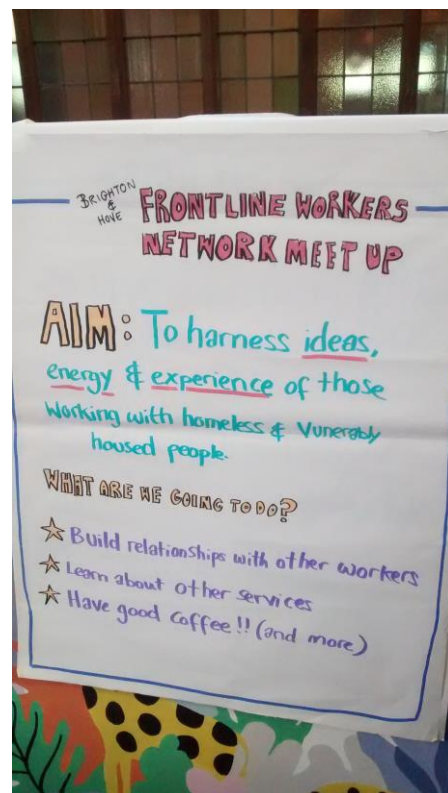 BRIGHTON
&
HOVE
FRONTLINE WORKERS
NETWORK MEET UP
AIM: To harness ideas,
energy & experience of those
Working with homeless & Vunerably
housed people.
WHAT ARE WE GOING TO DO?
☆ Build relationships with other workers
☆ Learn about other services
☆ Have good coffee!! (and more)